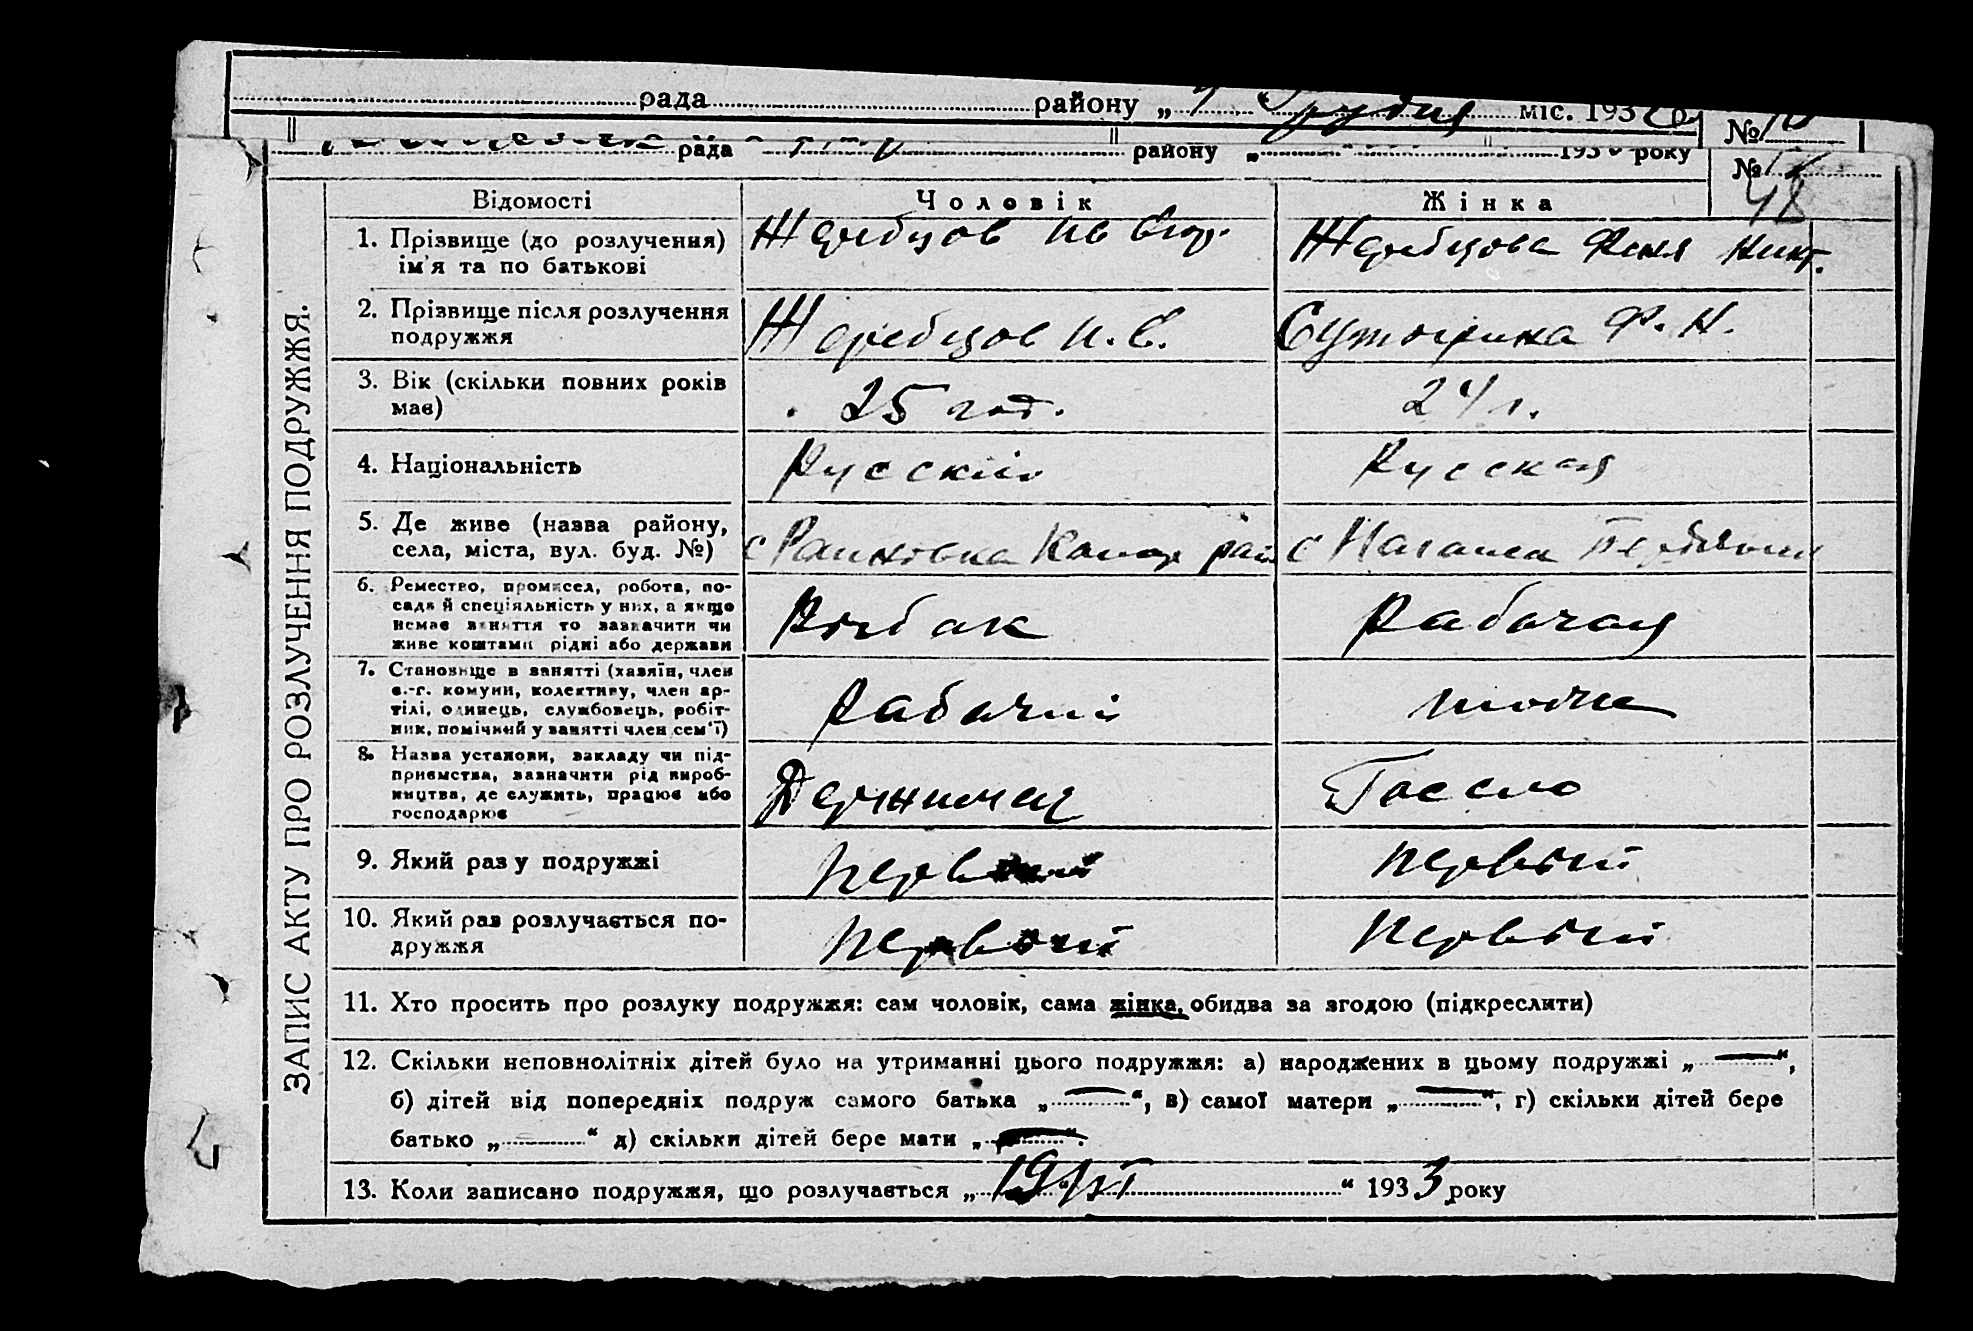 рада району „ 7 " Грудня міс. 193
№ 10
рада району „ " 193 року
№
48
ЗАПИС АКТУ ПРО РОЗЛУЧЕННЯ ПОДРУЖЖЯ.
Відомості Чоловік Жінка
1. Прізвище (до розлучення) ім'я та по батькові Жеребцов Ив Егор. Жеребцова Феня Никт.
2. Прізвище після розлучення подружжя Жеребцов И. Е. Сутогрина Ф. Н.
3. Вік (скільки повних років має) 25 год. 24 г.
4. Національність Русский Русская
5. Де живе (назва району, села, міста, вул. буд. №) с Рашковка рай с
6. Ремество, промисел, робота, посада й спеціяльність у них, а якщо немає заняття то зазначити чи живе коштами рідні або держави Рыбак Рабочая
7. Становище в занятті (хазяїн, член с.-г. комуни, колективу, член артілі, одинець, службовець, робітник, помічний у занятті член сем'ї) Рабочий тоже
8. Назва установи, закладу чи підприємства, зазначити рід виробництва, де служить, працює або господарює
9. Який раз у подружжі первый первый
10. Який раз розлучається подружжя первый первый
11. Хто просить про розлуку подружжя: сам чоловік, сама жінка, обидва за згодою (підкреслити)
12. Скільки неповнолітніх дітей було на утриманні цього подружжя: а) народжених в цьому подружжі „—",
б) дітей від попередніх подруж самого батька „—", в) самої матери „—", г) скільки дітей бере
батько „ " д) скільки дітей бере мати „—".
13. Коли записано подружжя, що розлучається „ 19/VI " 1933 року